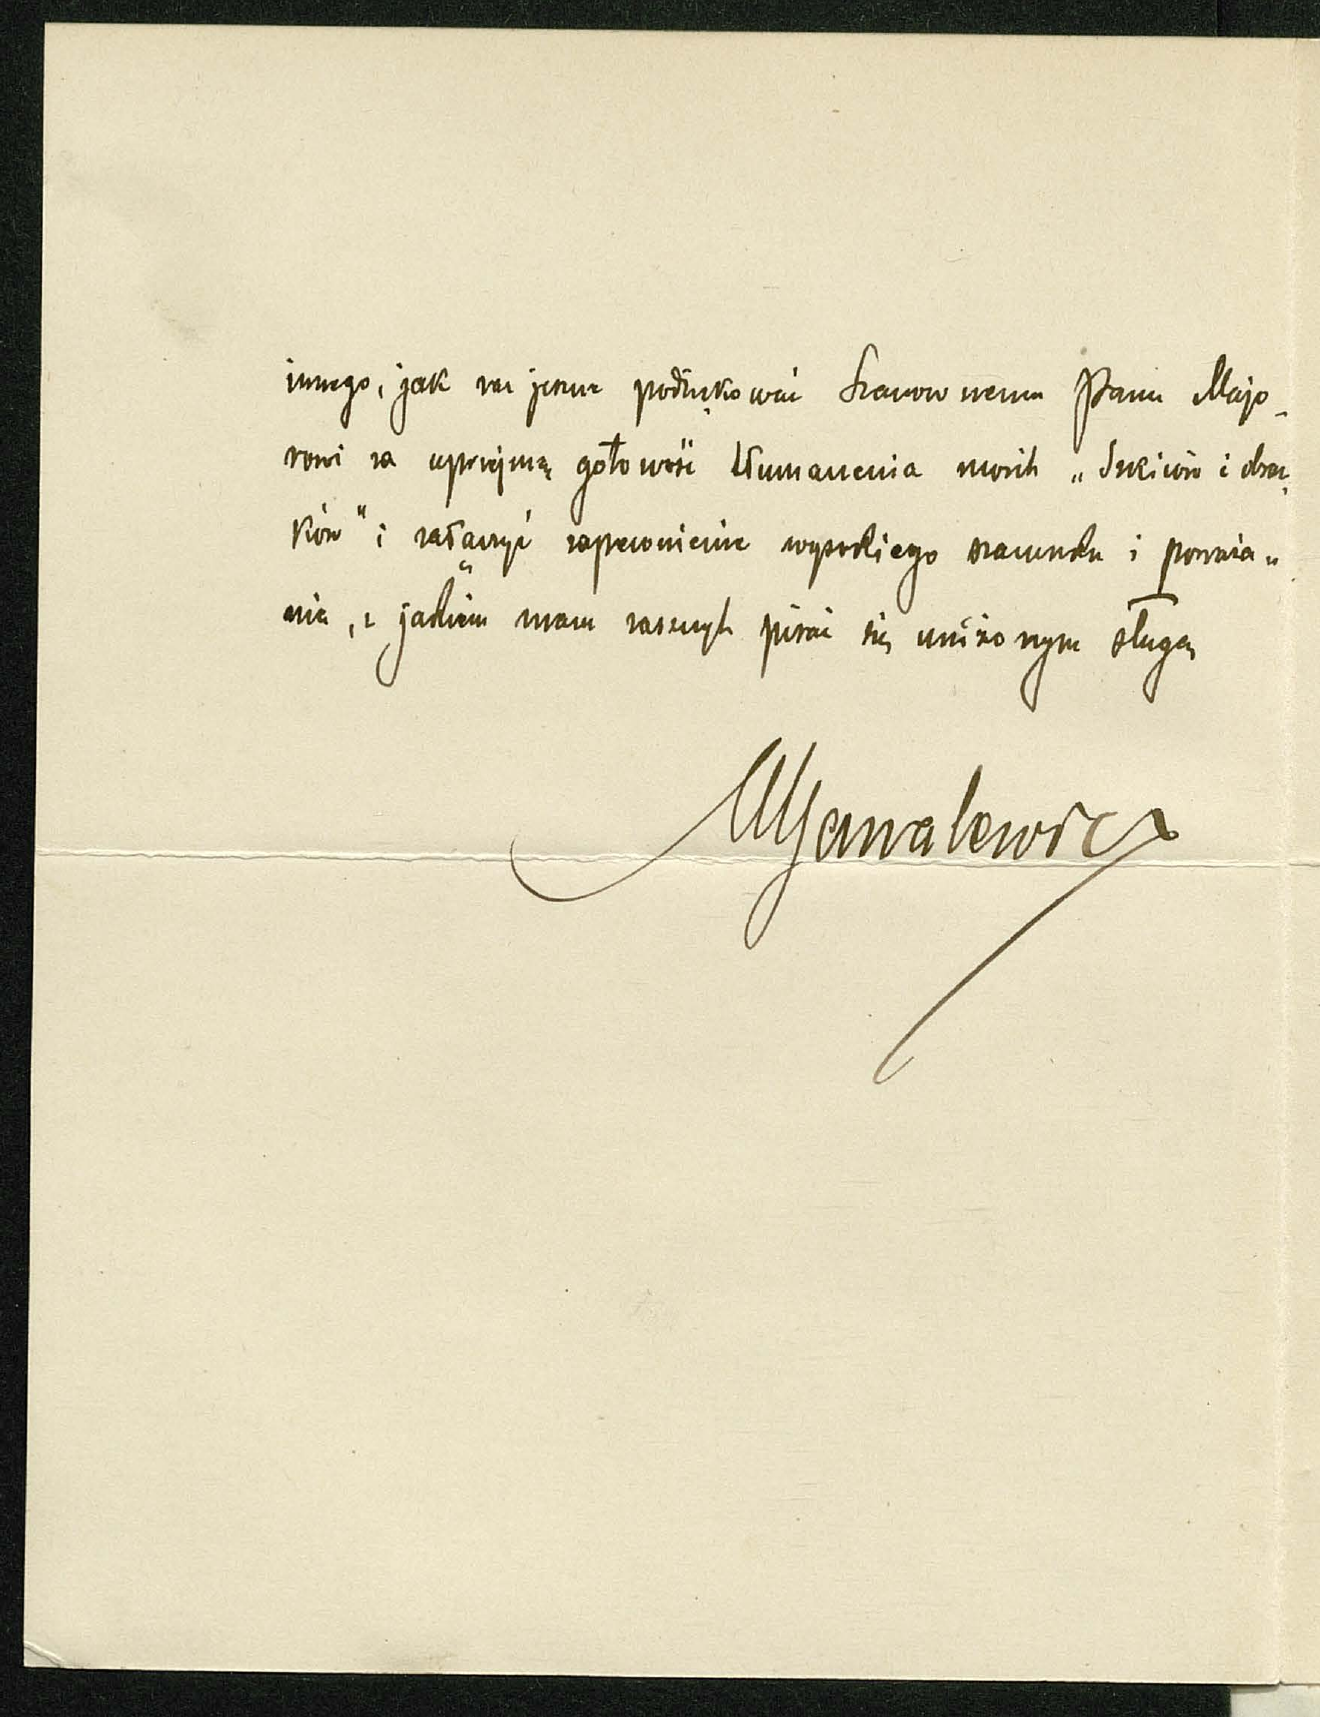 innego, jak raz jeszcze podziękować Szanownemu Panu Majo-
rowi za uprzejmą gotowość tłumaczenia moich „Szkiców i obraz-
ków" i załączyć zapewnienie wysokiego szacunku i poważa-
nia, z jakiem mam zaszczyt pisać się uniżonym sługą
MGawalewicz